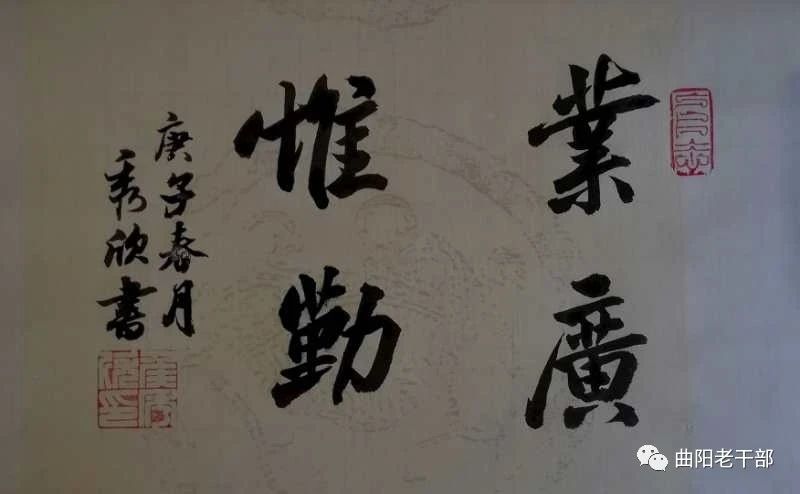 業廣
惟勤
庚子春月
秀欣書
曲阳老干部